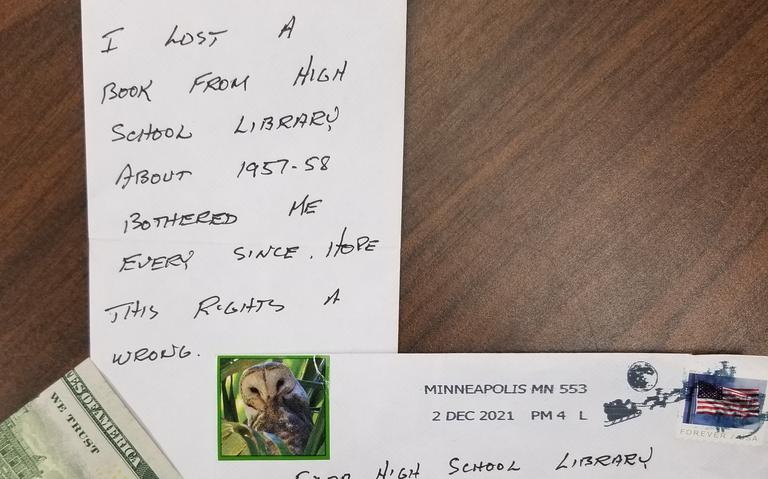 I LOST A
BOOK FROM HIGH
SCHOOL LIBRARY
ABOUT 1957-58
BOTHERED ME
EVERY SINCE. HOPE
THIS RIGHTS A
WRONG.
MINNEAPOLIS MN 553
2 DEC 2021 PM 4 L
FOREVER / USA
HIGH SCHOOL LIBRARY
TES OF AMERICA
WE TRUST